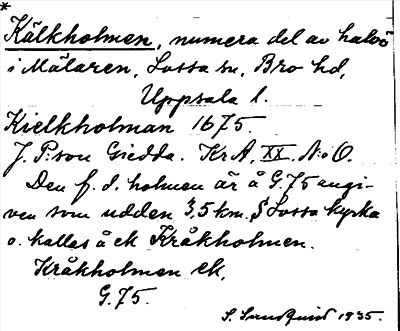 *
Kälkholmen, numera del av halvö
i Mälaren, Lossa sn, Bro hd,
Uppsala l.
Kielkholman 1675.
J. P:son Giedda. Kr A, XX. N:o O.
Den f. d. holmen är å G. 75 angi-
ven som udden 3,5 km. S Lossa kyrka
o. kallas å ek Kråkholmen.
Kråkholmen ek,
G. 75.
S. Sundquist 1935.